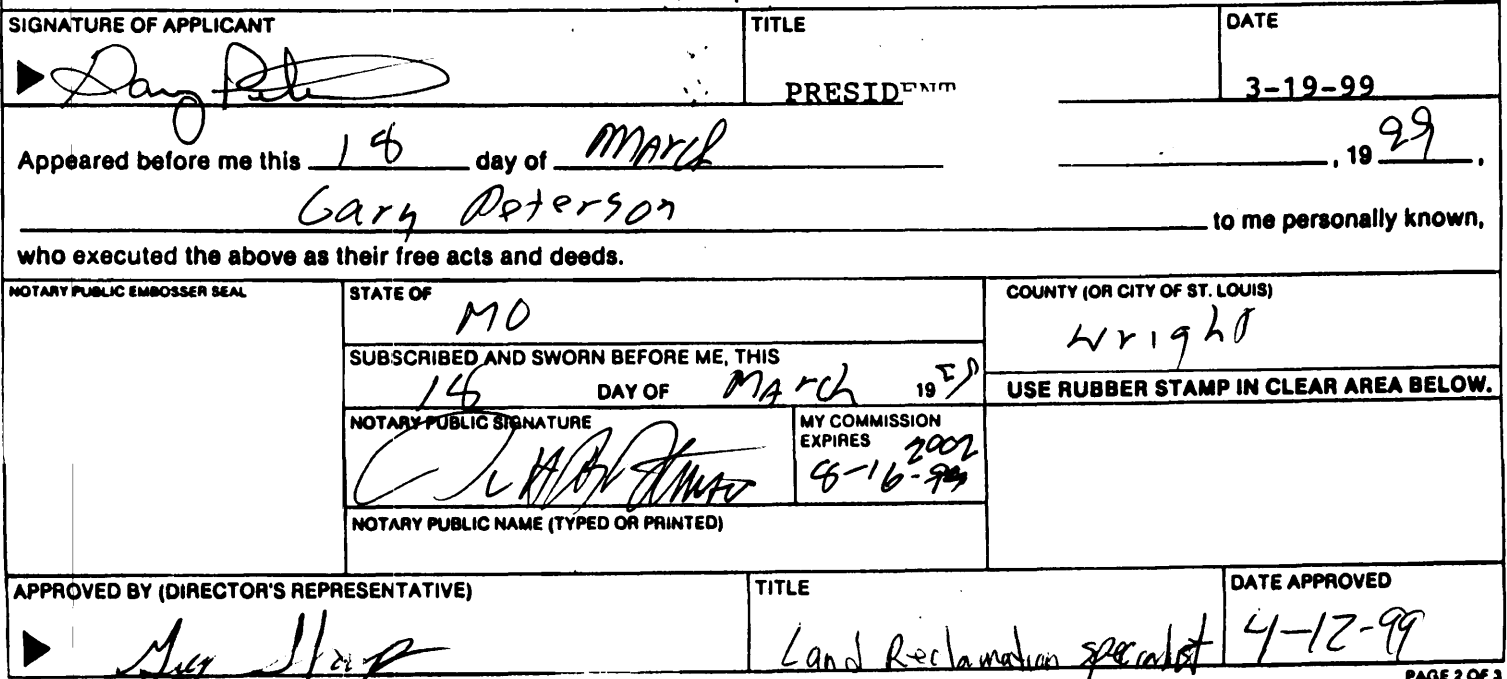 SIGNATURE OF APPLICANT TITLE DATE
▶ Gary PRESIDENT 3-19-99
Appeared before me this 18 day of March , 19 99 ,
Gary Peterson to me personally known,
who executed the above as their free acts and deeds.
NOTARY PUBLIC EMBOSSER SEAL STATE OF COUNTY (OR CITY OF ST. LOUIS)
MO Wright
SUBSCRIBED AND SWORN BEFORE ME, THIS
18 DAY OF March 19 99 USE RUBBER STAMP IN CLEAR AREA BELOW.
NOTARY PUBLIC SIGNATURE MY COMMISSION
EXPIRES 2002
8-16-
NOTARY PUBLIC NAME (TYPED OR PRINTED)
APPROVED BY (DIRECTOR'S REPRESENTATIVE) TITLE DATE APPROVED
▶ Land Reclamation specialist 4-12-99
PAGE 2 OF 3